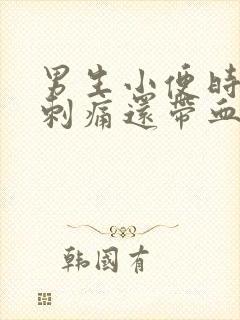 男生小便時
刺痛還帶血
韩國有